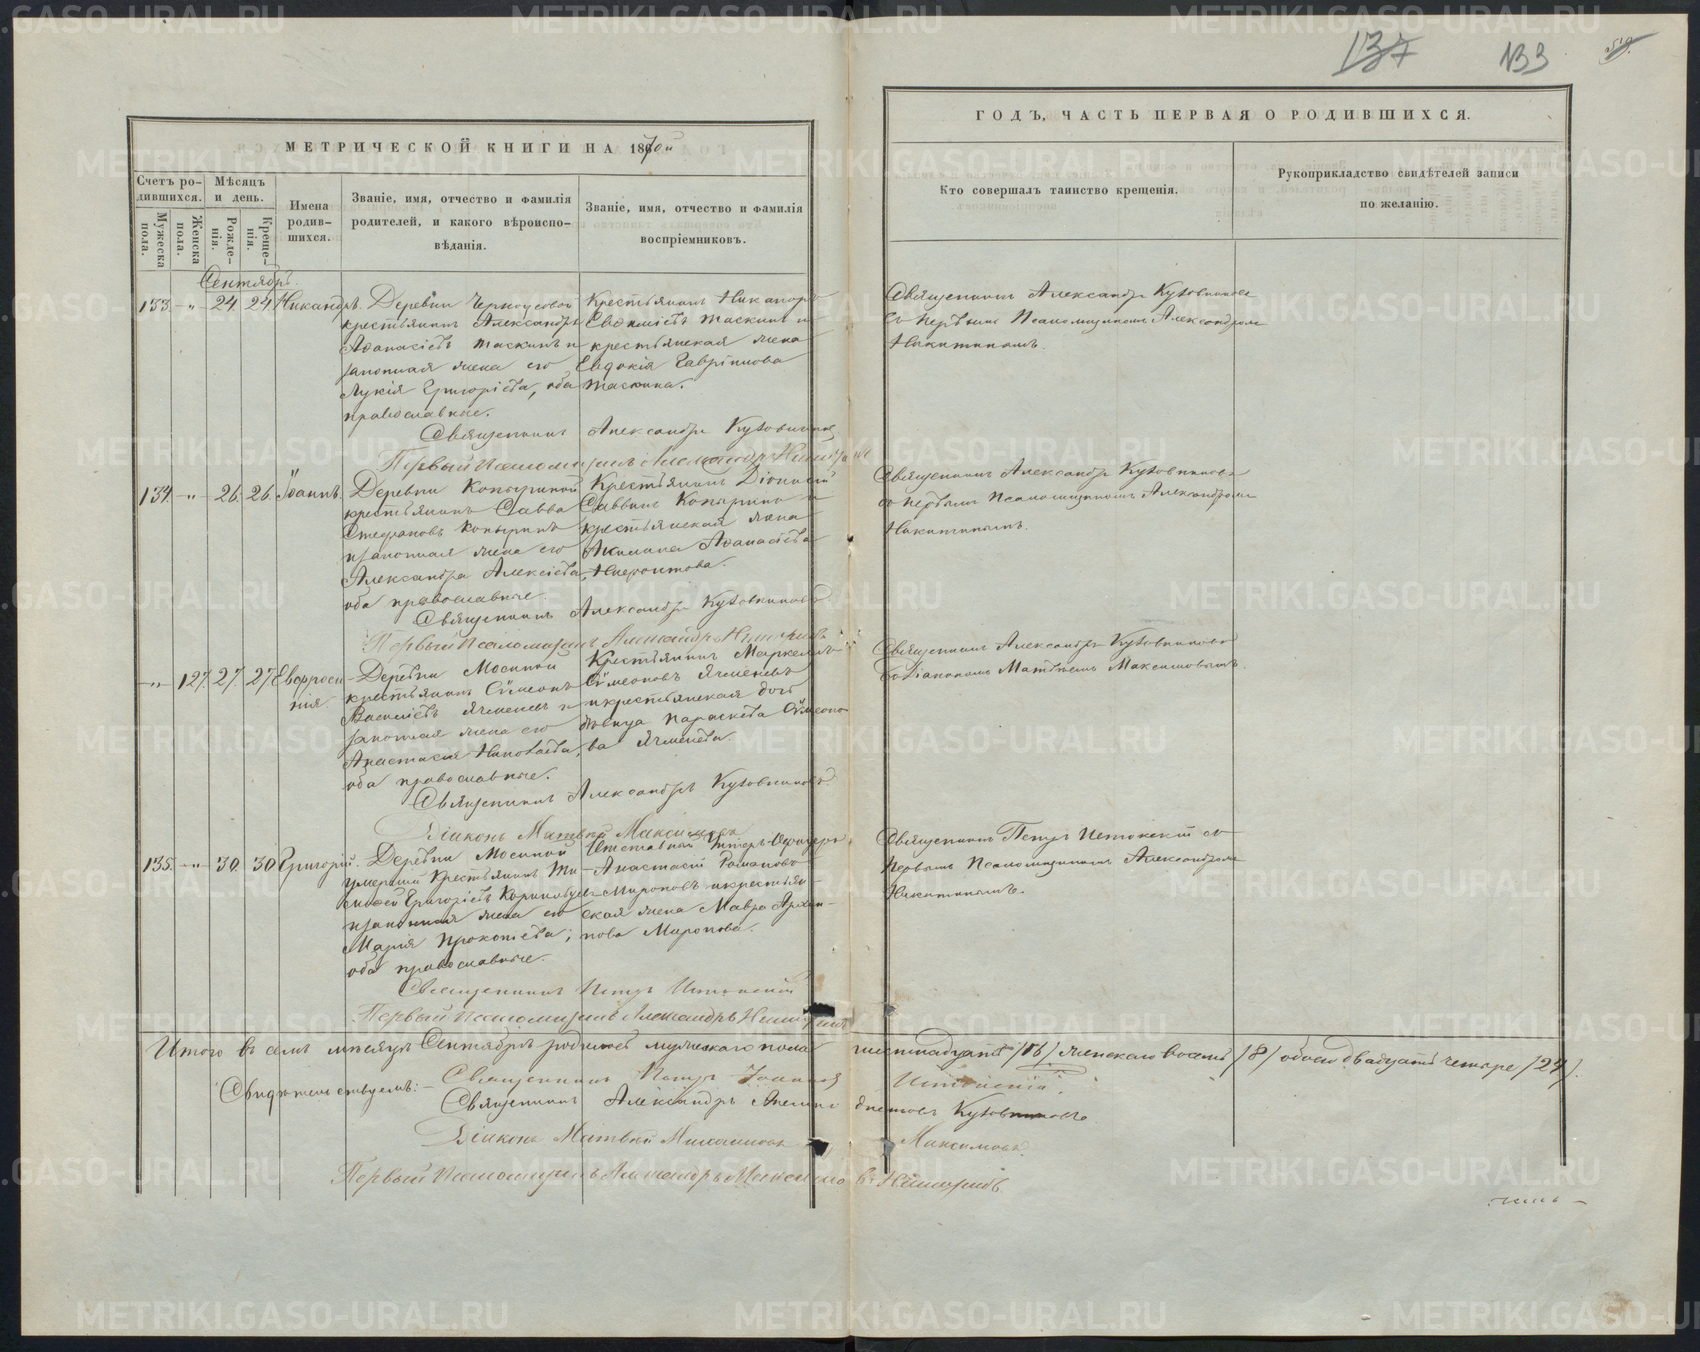 137 133
МЕТРИЧЕСКОЙ КНИГИ НА 1870й
ГОДЪ, ЧАСТЬ ПЕРВАЯ О РОДИВШИХСЯ.
Счетъ родившихся.
Мужеска пола.
Женска пола.
Мѣсяцъ и день.
Рожденія.
Крещенія.
Имена родившихся.
Званіе, имя, отчество и фамилія
родителей, и какого вѣроиспо-
вѣданія.
Званіе, имя, отчество и фамилія
воспріемниковъ.
Кто совершалъ таинство крещенія.
Рукоприкладство свидѣтелей записи
по желанію.
Сентябрь
133. - „ - 24. 24. Никандръ.
Деревни Черноусовой
крестьянинъ Александръ
Аѳанасіевъ Таскинъ и
законная жена его
Лукія Григоріева, оба
православные.
Крестьянинъ Никаноръ
Евѳиміевъ Таскинъ и
крестьянская жена
Евдокія Гавріилова
Таскина.
Священникъ Александръ Кузовниковъ
съ первымъ Псаломщикомъ Александромъ
Никитинымъ.
Священникъ Александръ Кузовниковъ
Первый Псаломщикъ Александръ Никитинъ
134 - „ - 26. 26. Іоаннъ.
Деревни Копыриной
крестьянинъ Савва
Стефановъ Копыринъ
и законная жена его
Александра Алексіева,
оба православные.
Крестьянинъ Діонисій
Саввинъ Копыринъ и
крестьянская жена
Акилина Аѳанасіева
Священникъ Александръ Кузовниковъ
съ первымъ Псаломщикомъ Александромъ
Никитинымъ.
Священникъ Александръ Кузовниковъ
Первый Псаломщикъ Александръ Никитинъ
- „ - 127. 27. 27. Евфросинія
Деревни Мосиной
крестьянинъ Сѵмеонъ
Василіевъ Ячменевъ и
законная жена его
Анастасія Николаева,
оба православные.
Крестьянинъ Маркеллъ
Сѵмеоновъ Ячменевъ
и крестьянская дочь
дѣвица Параскева Сѵмеоно-
ва Ячменева.
Священникъ Александръ Кузовниковъ
съ Діакономъ Матвѣемъ Максимовымъ.
Священникъ Александръ Кузовниковъ
Діаконъ Матвей Максимовъ
135. - „ - 30. 30 Григорій.
Деревни Мосиной
умершій крестьянинъ Ти-
моѳей Григоріевъ
и законная жена его
Марія Прокопіева;
оба православные.
Отставный Унтеръ-Офицеръ
Анастасій Романовъ
Мироновъ и крестьян-
ская жена Мавра Архи-
пова Миронова.
Священникъ Петръ Истокскій съ
первымъ Псаломщикомъ Александромъ
Никитинымъ.
Священникъ Петръ Истокскій
Первый Псаломщикъ Александръ Никитинъ
Итого въ семъ мѣсяцѣ Сентябрѣ родилось мужескаго пола шестнадцать /16/ женскаго восемь /8/ обоего двадцать четыре /24/.
Свидѣтельствуемъ: - Священникъ Петръ Іоанновъ Истокскій
Священникъ Александръ Кузовниковъ
Діаконъ Матвей Максимовъ
Первый Псаломщикъ Александръ Никитинъ
METRIKI.GASO-URAL.RU